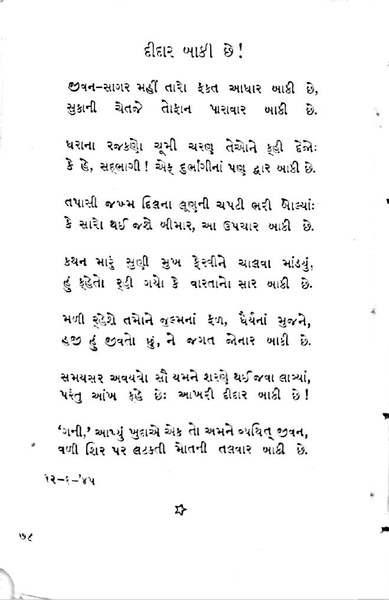 દીદાર બાકી છે!
જીવન-સાગર મહીં તારો ફકત આધાર બાકી છે,
સુકાની ચેતજે તોફાન પારાવાર બાકી છે.
ધરાના રજકણો ચૂમી ચરણ તેઓને કહી દેજો:
કે હે, સદ્દભાગી! એક દુર્ભાગીનાં પણ દ્વાર બાકી છે.
તપાસી જખ્મ દિલના લૂણની ચપટી ભરી બોલ્યાં:
કે સારો થઈ જશે બીમાર, આ ઉપચાર બાકી છે.
કથન મારું સુણી મુખ ફેરવીને ચાલવા માંડયું,
હું કહેતો રહી ગયો કે વારતાનો સાર બાકી છે.
મળી રહેશે તમોને જુલ્મનાં ફળ, ધૈર્યનાં મુજને,
હજી હું જીવતો છું, ને જગત જોનાર બાકી છે.
સમયસર અવયવો સૌ યમને શરણે થઈ જવા લાગ્યાં,
પરંતુ આંખ કહે છે: આખરી દીદાર બાકી છે!
‘ગની,’ આપ્યું ખુદાએ એક તો અમને વ્યથિત જીવન,
વળી શિર પર લટકતી મોતની તલવાર બાકી છે.
૧૨-૬-’૪૫
૭૮